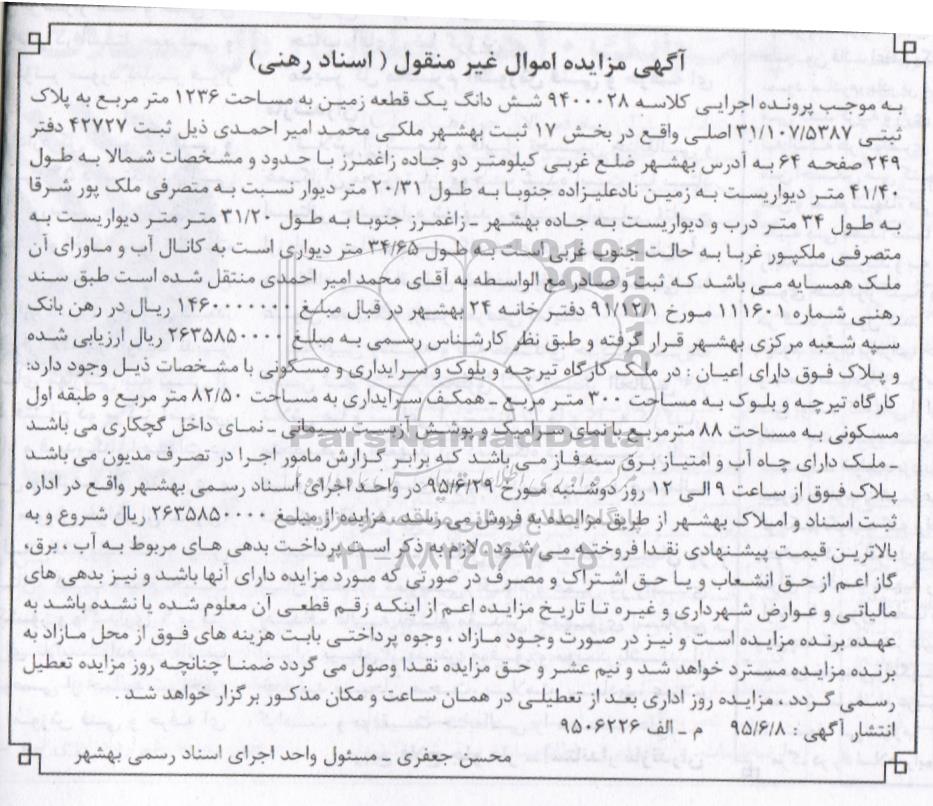 آگهی مزایده اموال غیر منقول ( اسناد رهنی )
به موجب پرونده اجرایی کلاسه ۹۴۰۰۰۲۸ شش دانگ یک قطعه زمین به مساحت ۱۲۳۶ متر مربع به پلاک
ثبتی ۳۱/۱۰۷/۵۳۸۷ اصلی واقع در بخش ۱۷ ثبت بهشهر ملکی محمد امیر احمدی ذیل ثبت ۴۲۷۲۷ دفتر
۲۴۹ صفحه ۶۴ به آدرس بهشهر ضلع غربی کیلومتر دو جاده زاغمرز با حدود و مشخصات شمالا به طول
۴۱/۴۰ متر دیواریست به زمین نادعلیزاده جنوبا به طول ۲۰/۳۱ متر دیوار نسبت به متصرفی ملک پور شرقا
به طول ۳۴ متر درب و دیواریست به جاده بهشهر ـ زاغمرز جنوبا به طول ۳۱/۲۰ متر متر دیواریست به
متصرفی ملکپور غربا به حالت جنوب غربی است به طول ۳۴/۶۵ متر دیواری است به کانال آب و ماورای آن
ملک همسایه می باشد که ثبت و صادر مع الواسطه به آقای محمد امیر احمدی منتقل شده است طبق سند
رهنی شماره ۱۱۱۶۰۱ مورخ ۹۱/۱۲/۱ دفتر خانه ۲۴ بهشهر در قبال مبلغ ۱۴۶۰۰۰۰۰۰۰ ریال در رهن بانک
سپه شعبه مرکزی بهشهر قرار گرفته و طبق نظر کارشناس رسمی به مبلغ ۲۶۳۵۸۵۰۰۰۰ ریال ارزیابی شده
و پلاک فوق دارای اعیان : در ملک کارگاه تیرچه و بلوک و سرایداری و مسکونی با مشخصات ذیل وجود دارد:
کارگاه تیرچه و بلوک به مساحت ۳۰۰ متر مربع ـ همکف سرایداری به مساحت ۸۲/۵۰ متر مربع و طبقه اول
مسکونی به مساحت ۸۸ متر مربع بانمای سرامیک و پوشش ایزیست سیمانی ـ نمای داخل گچکاری می باشد
. ملک دارای چاه آب و امتیاز برق سه فاز می باشد که برابر گزارش مامور اجرا در تصرف مدیون می باشد
پلاک فوق از ساعت ۹ الی ۱۲ روز دوشنبه مورخ ۹۵/۶/۲۹ در واحد اجرای اسناد رسمی بهشهر واقع در اداره
ثبت اسناد و املاک بهشهر از طریق مزایده به فروش می رسد . مزایده از مبلغ ۲۶۳۵۸۵۰۰۰۰ ریال شروع و به
بالاترین قیمت پیشنهادی نقدا فروخته می شود . لازم به ذکر است پرداخت بدهی های مربوط به آب ، برق،
گاز اعم از حق انشعاب و یا حق اشتراک و مصرف در صورتی که مورد مزایده دارای آنها باشد و نیز بدهی های
مالیاتی و عوارض شهرداری و غیره تا تاریخ مزایده اعم از اینکه رقم قطعی آن معلوم شده یا نشده باشد به
عهده برنده مزایده است و نیز در صورت وجود مازاد ، وجوه پرداختی بابت هزینه های فوق از محل مازاد به
برنده مزایده مسترد خواهد شد و نیم عشر و حق مزایده نقدا وصول می گردد ضمنا چنانچه روز مزایده تعطیل
رسمی گردد . مزایده روز اداری بعد از تعطیلی در همان ساعت و مکان مذکور برگزار خواهد شد
انتشار آگهی : ۹۵/۶/۸ م ـ الف ۹۵۰۶۲۲۶
محسن جعفری ـ مسئول واحد اجرای اسناد رسمی بهشهر
ParsNamadData
۰۲۱-۸۸۳۴۹۶۷۰-۵